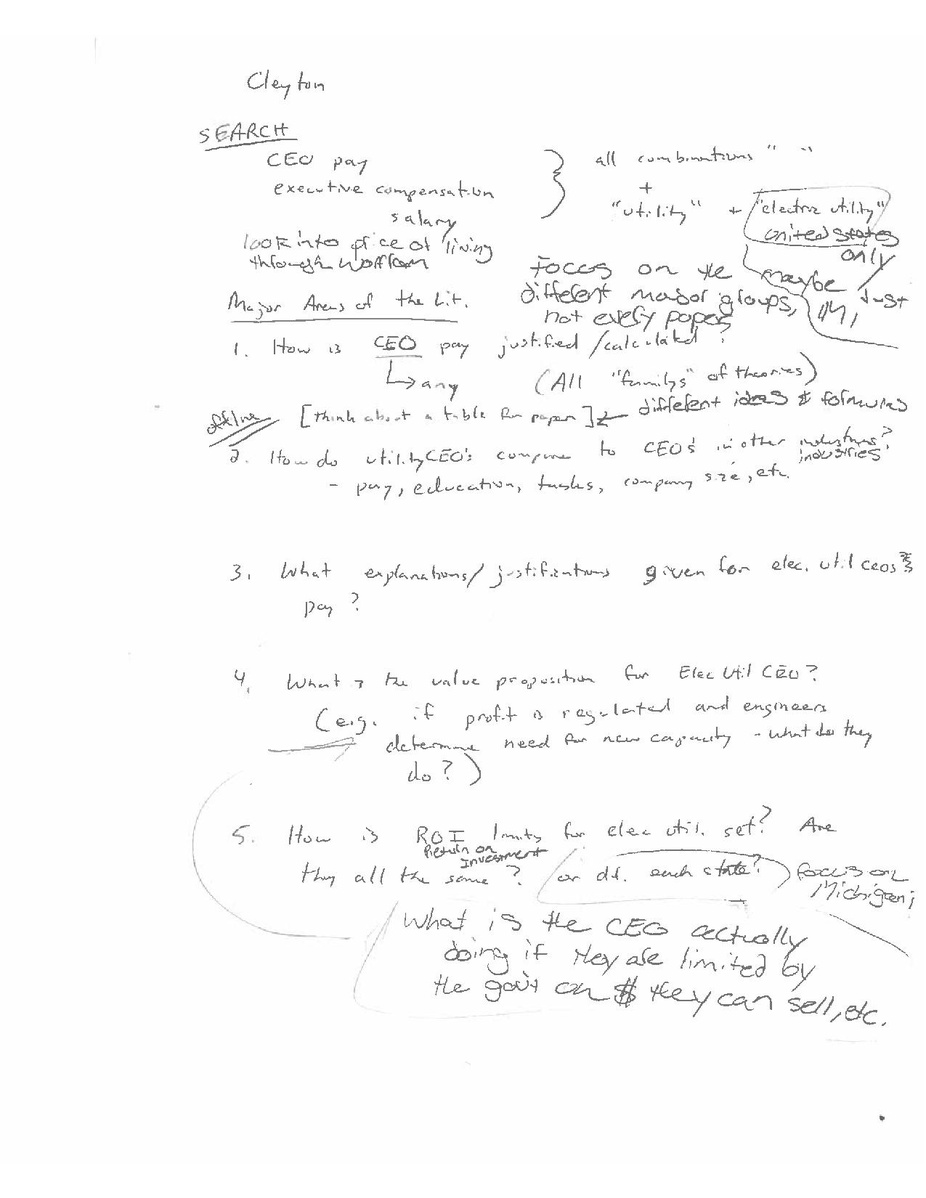 Cleyton
SEARCH
CEO pay
executive compensation
salary
all combinations " "
+
"utility" + "electric utility"
united states
only
look into price of living
through Wolfram
Focus on the maybe
different major groups, MI, just
not every paper
Major Areas of the Lit.
1. How is CEO pay justified/calculated?
any (All "familys" of theories)
offline [think about a table for paper] different ideas & formulas
2. How do utility CEO's compare to CEO's in other industries?
industries
- pay, education, tasks, company size, etc.
3. What explanations/justifications given for elec. util CEOs
pay?
4. What is the value proposition for Elec Util CEO?
(e.g. if profit is regulated and engineers
determine need for new capacity - what do they
do?)
5. How is ROI limits for elec util. set? Are
Return on
Investment
they all the same? or df. each state? focus on
Michigan;
What is the CEO actually
doing if they are limited by
the gov't on $ they can sell, etc.